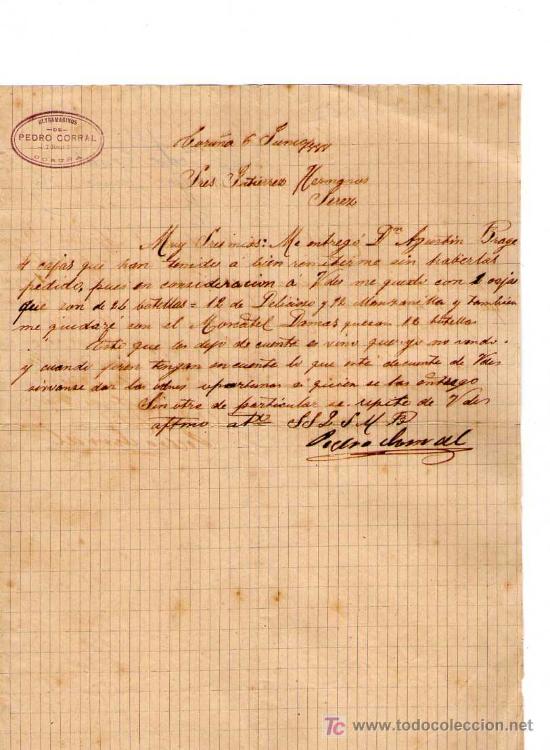 ULTRAMARINOS
DE
PEDRO CORRAL
CORUÑA
Coruña 6 Junio
Sres Gutierrez Hermanos
Jerez
Muy Sres mios: Me entregó Dn Agustin Frage
4 cajas que han tenido á bien remitirme sin haberlas
pedido, pues en consideracion á Vdes me quedo con 2 cajas
que son de 24 botellas = 12 de y 12 Manzanilla y tambien
me quedare con el Moscatel Damas que son 12 botellas
Asi que las dejo de cuenta es vino que yo no vendo
y cuando giren tengan en cuenta lo que este descuente de Vdes
sirvanse dar las ordes oportunas á quien se las entrego
Sin otro de particular se repite de Vdes
aftmo atto S S Q S M B
Pedro Corral
TC www.todocoleccion.net